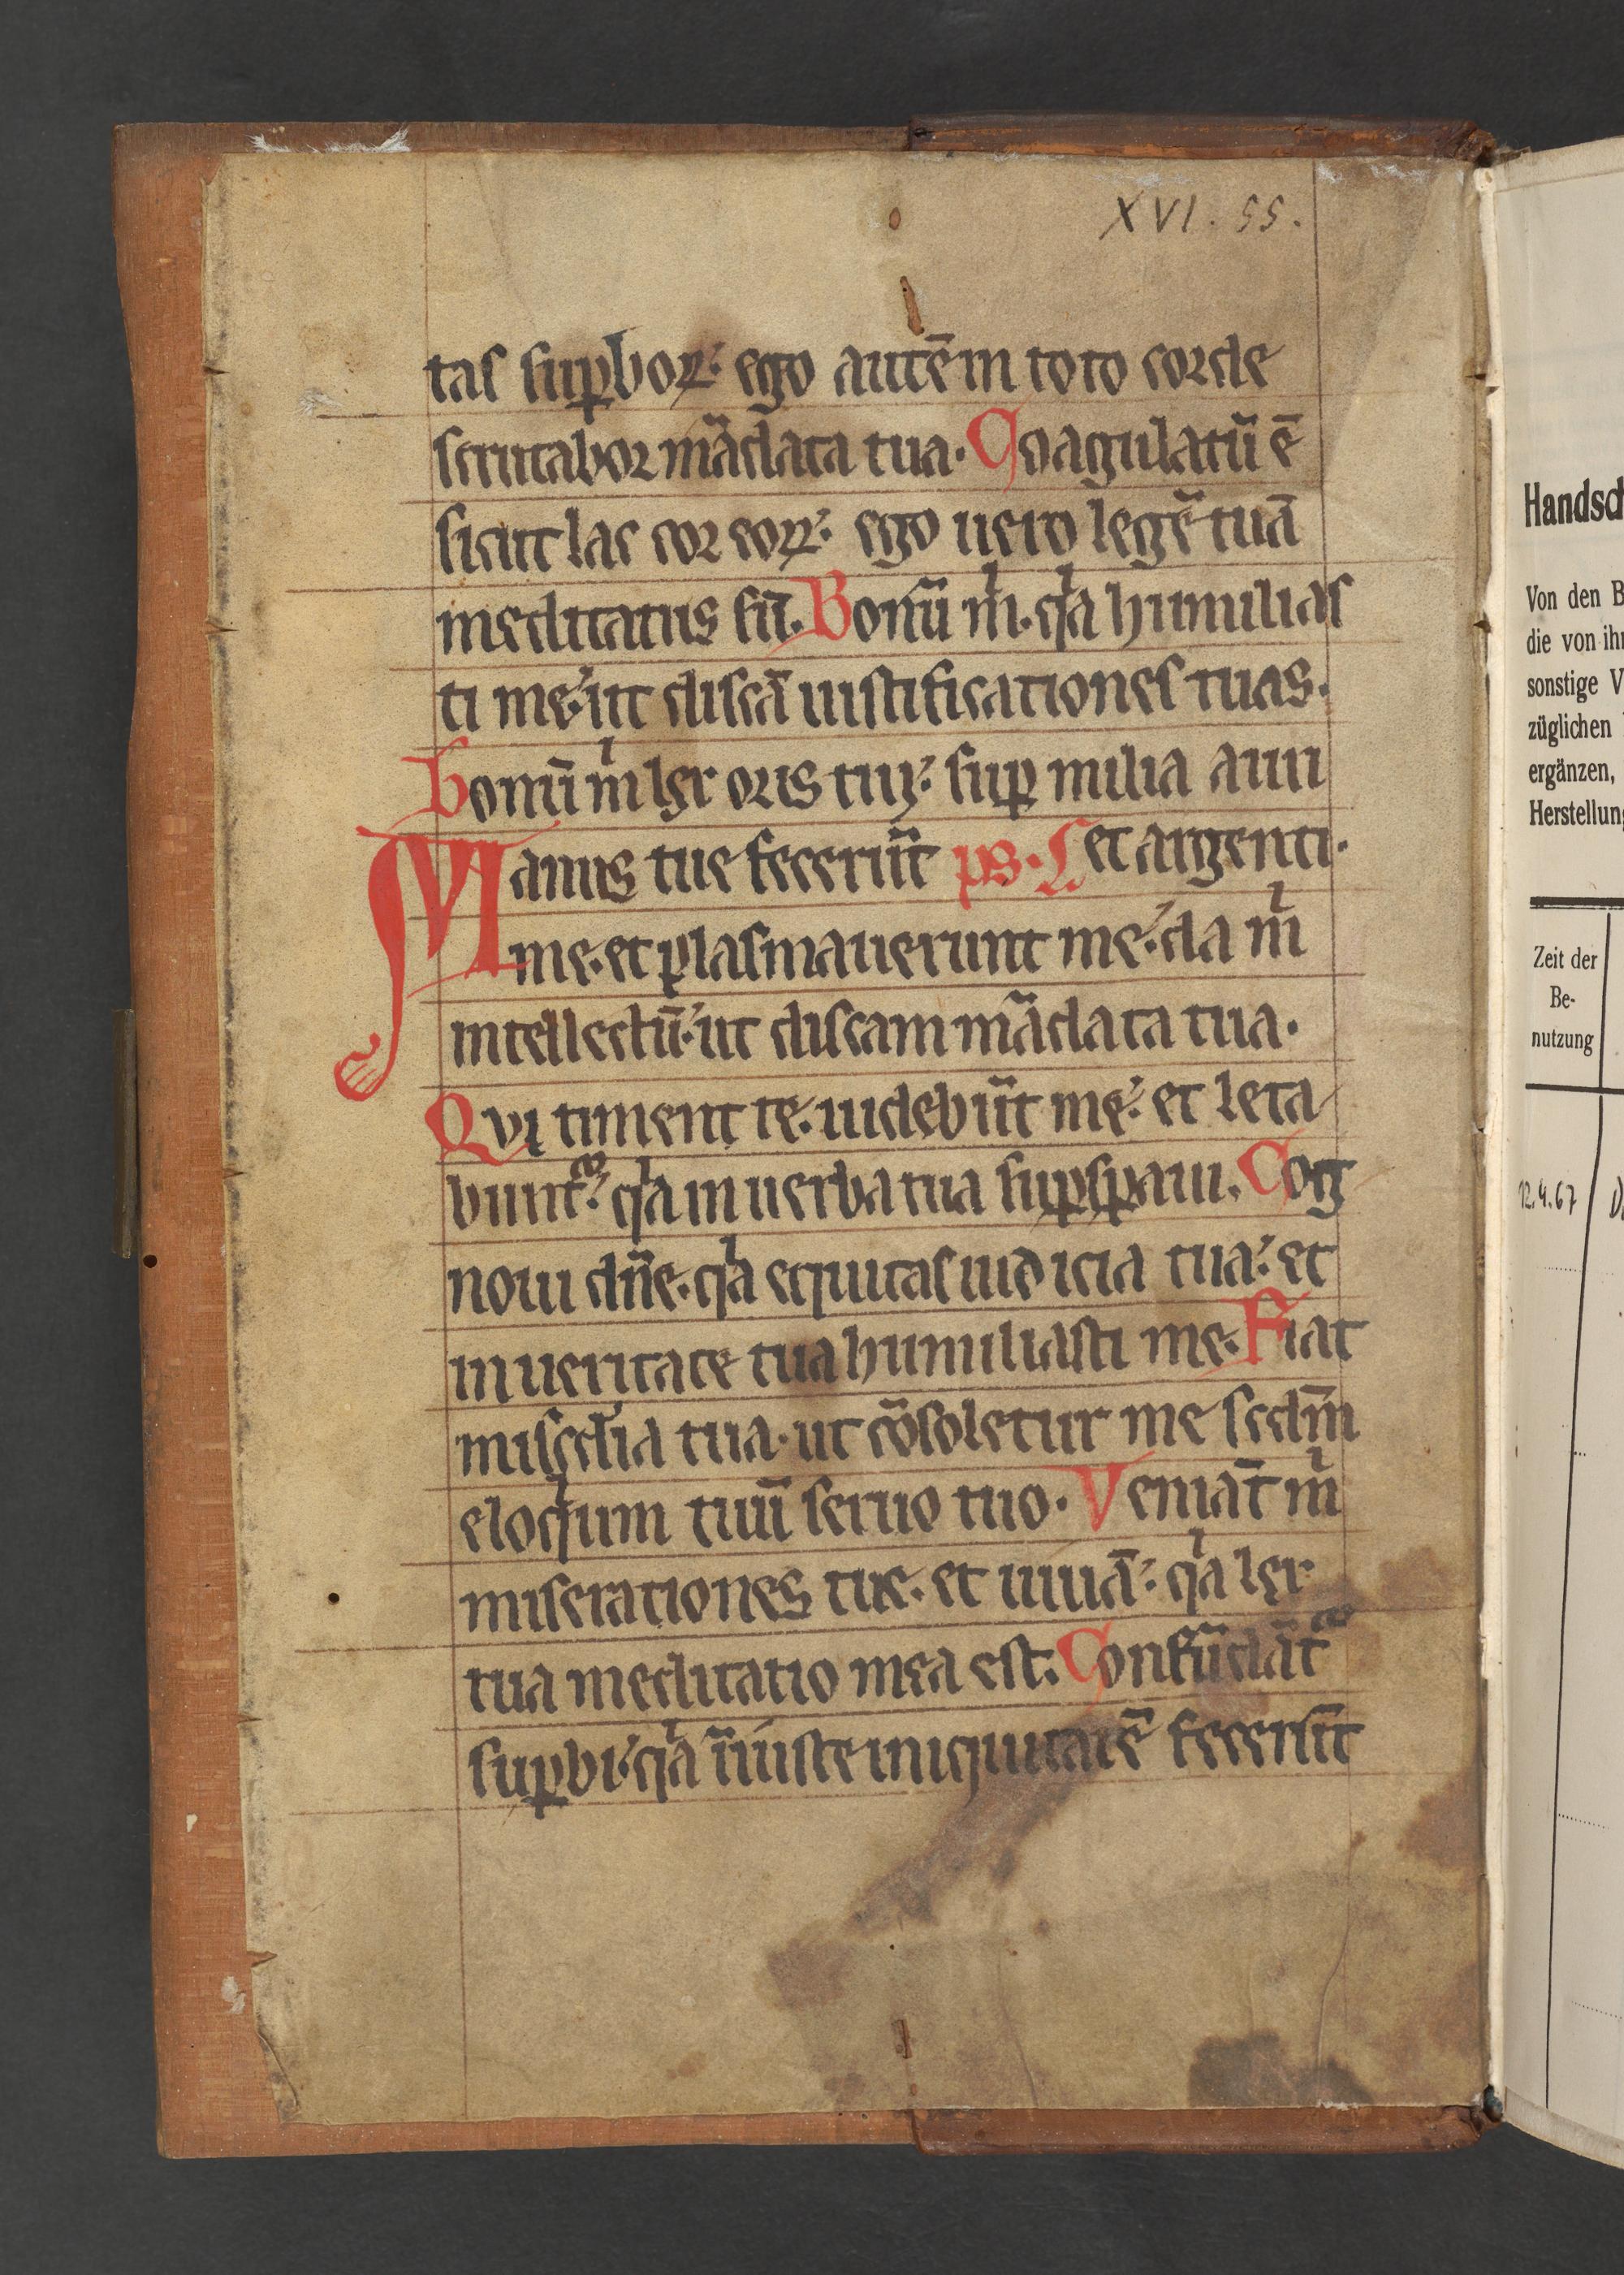 XVI. 55.
tas sup̱boꝝ: ego autē in toto corde
scrutabor mādata tua. Coagulatū ē
sicut lac cor eoꝝ: ego uero legē tuā
meditatus sū. Bonū mͥ. qͥa humilias
ti me: ut discā iustificationes tuas.
Bonū mͥ lex oris tui: suꝑ milia auri
Manus tue fecerūt ps. L et argenti.
me. et plasmauerunt me: da mͥ
intellectū: ut discam mādata tua.
Qui timent te. uidebūt me: et leta
bunt᷑: qͥa in uerba tua suꝑsꝑaui. Cog
noui dn̄e. qͥa equitas iudicia tua: et
in ueritate tua humiliasti me. Fiat
misc̄dia tua. ut cōsoletur me scdm̄
eloqͥum tuū seruo tuo. Veniāt mͥ
miserationes tue. et uiuā: qͥa lex
tua meditatio mea est. Confūdāt᷑
suꝑbi: qͥa iniuste iniquitatē fecerūt
Handsch
Von den B
die von ihr
sonstige V
züglichen
ergänzen,
Herstellung
Zeit der
Be-
nutzung
12.4.67